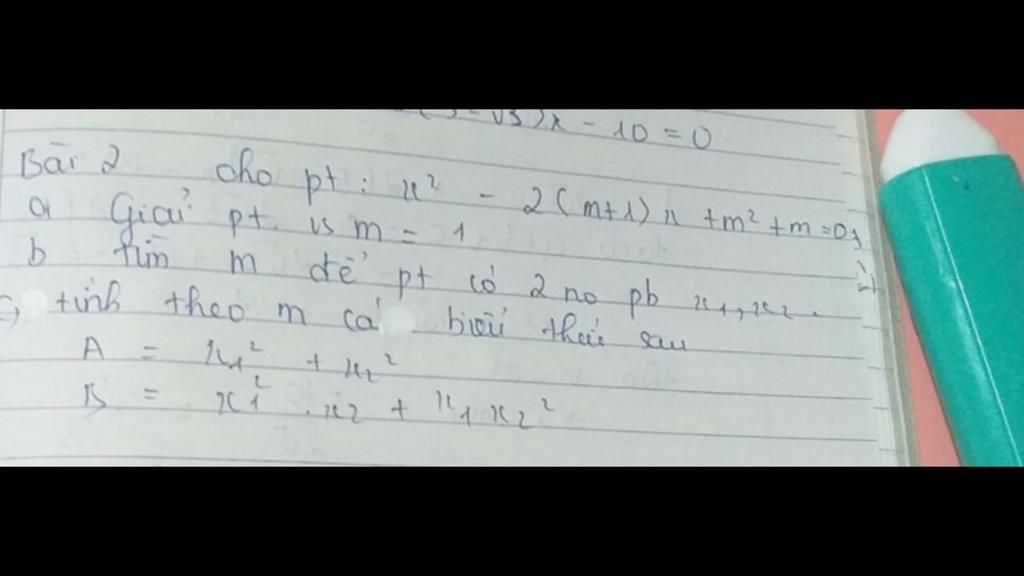 - 10 = 0
Bài 2 cho pt : x² - 2(m+1)x + m² + m = 0
a Giải pt vs m = 1
b tìm m để pt có 2 no pb x₁, x₂.
tính theo m cá biểu thức sau
A = x₁² + x₂²
B = x₁² . x₂ + x₁x₂²